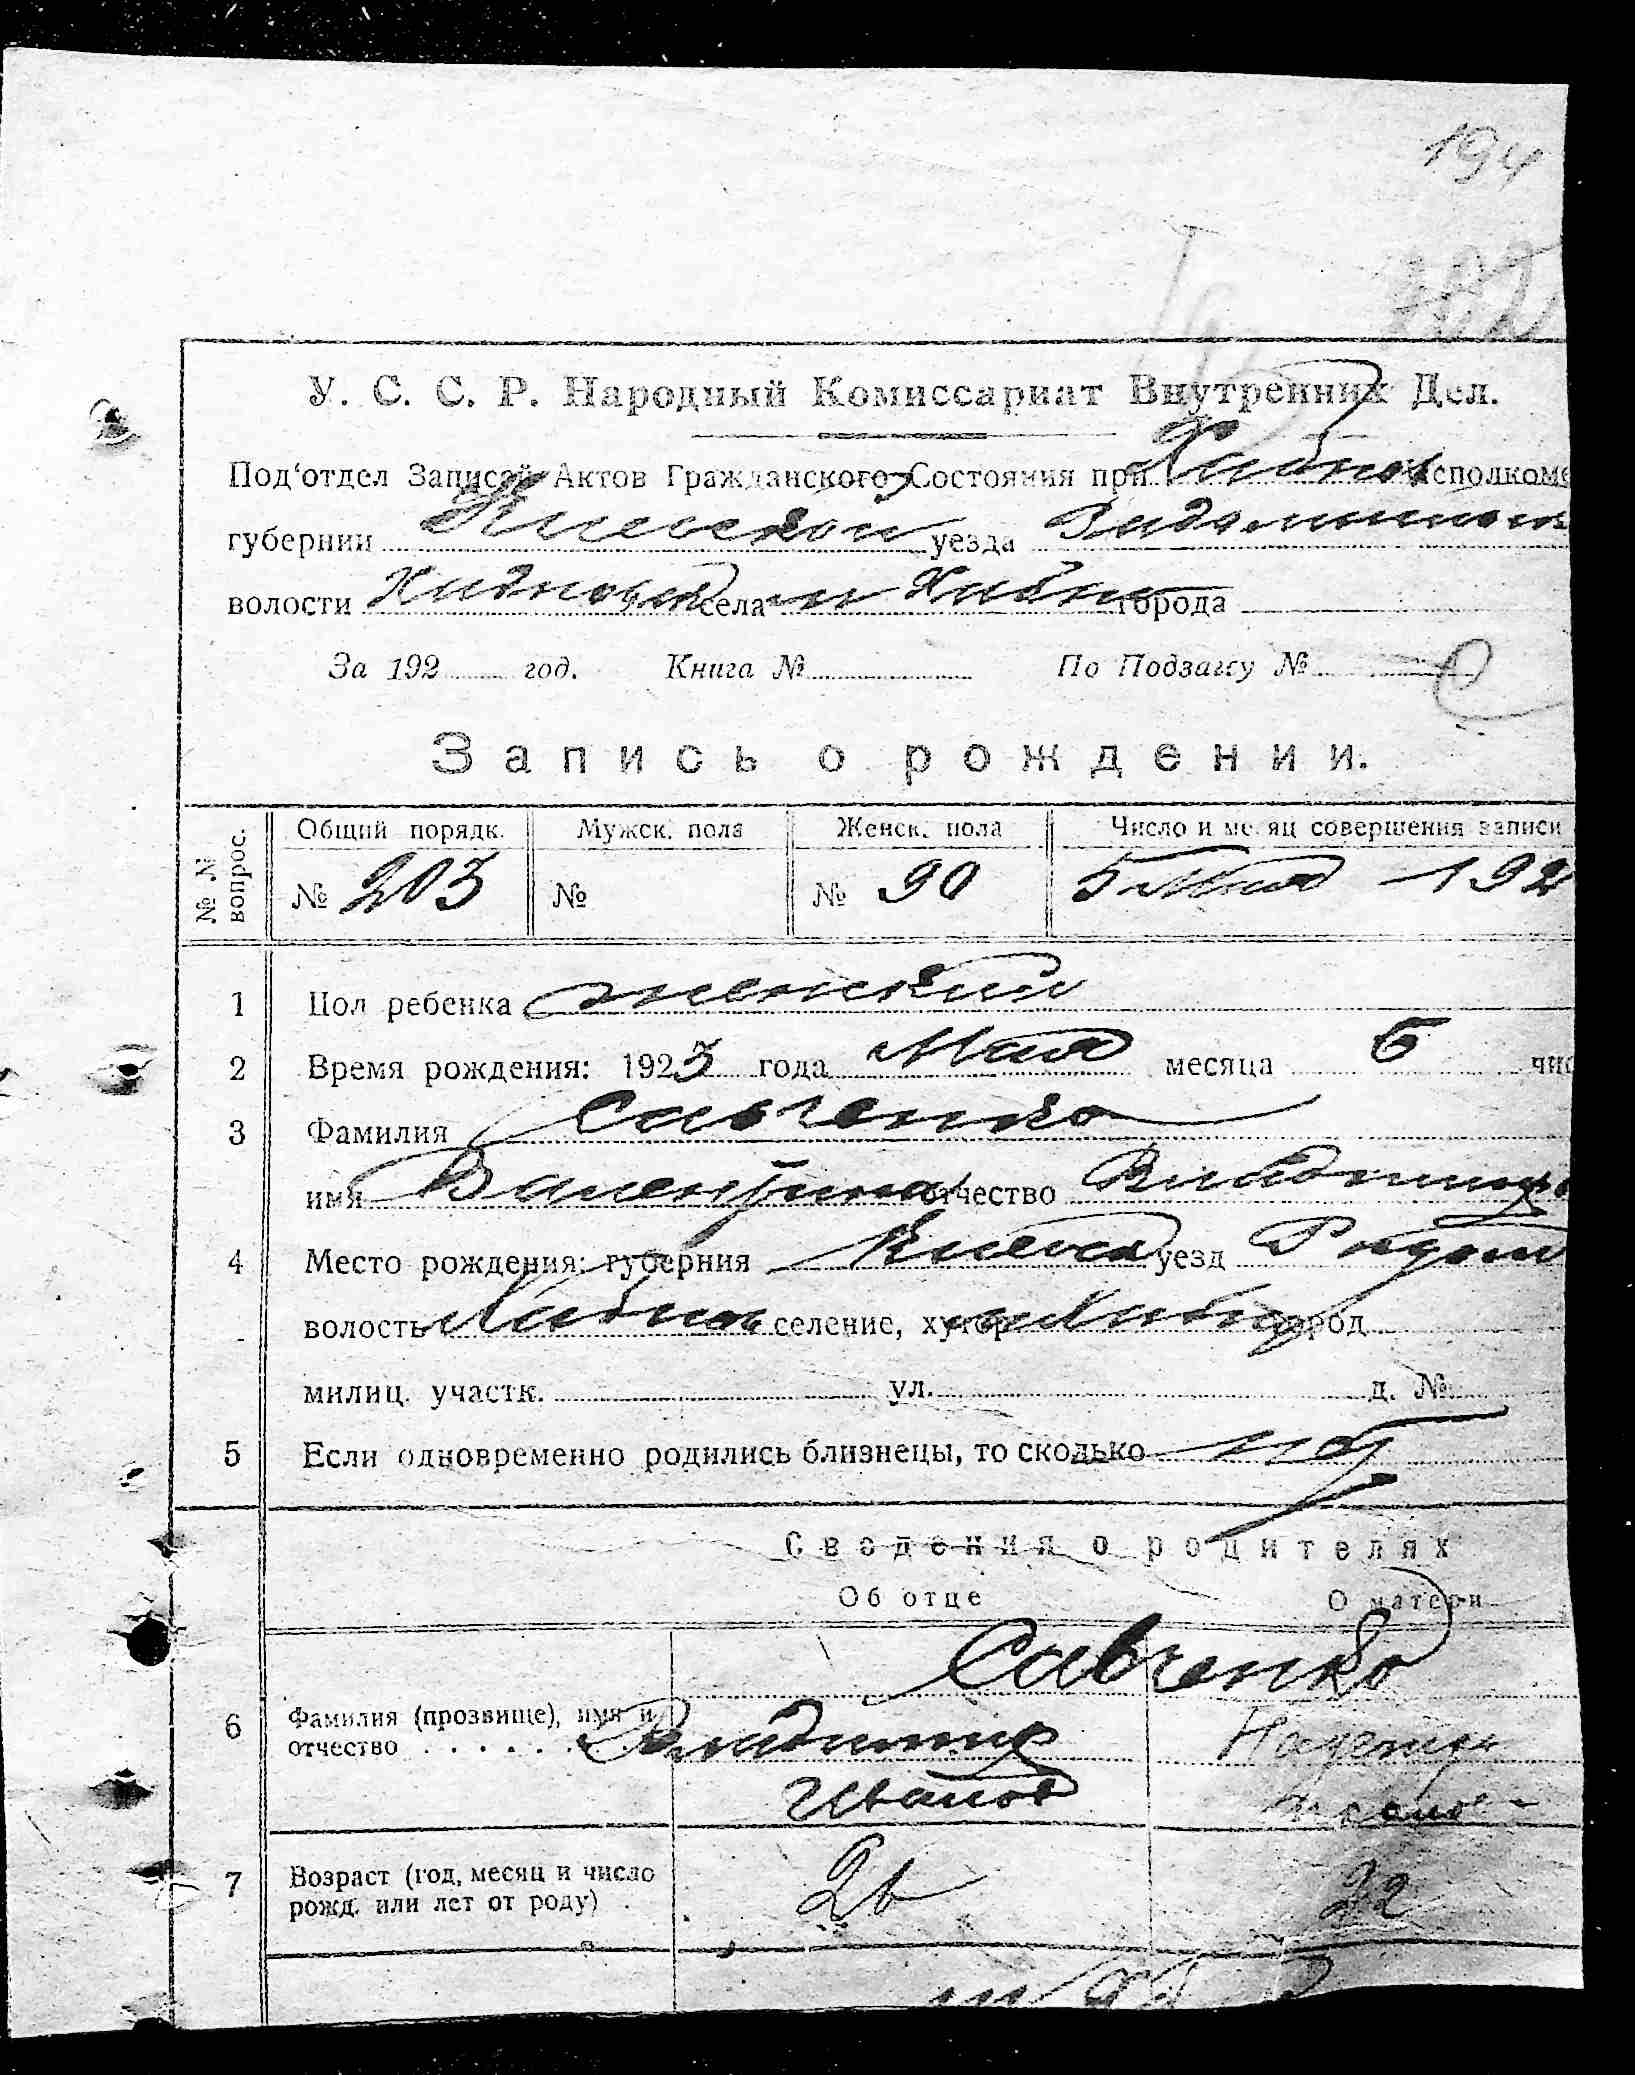 194
У. С. С. Р. Народный Комиссариат Внутренних Дел.
Под'отдел Записей Актов Гражданского Состояния при Хабном исполкоме
губернии Киевской уезда
волости села м Хабно города
За 192 год. Книга № По Подзагсу №
Запись о рождении.
№ № вопрос. Общий порядк. Мужск. пола Женск. пола Число и месяц совершения записи
№ 203 № № 90 5 Мая 192
1 Пол ребенка женский
2 Время рождения: 1923 года Мая месяца 5 чис
3 Фамилия Савченко
имя Валентина отчество Владимир
4 Место рождения: губерния Киевск уезд
волость Хабное селение, хутор м Хабно город
милиц. участк. ул. д. №
5 Если одновременно родились близнецы, то сколько нет
Сведения о родителях
Об отце О матери
Савченко
6 Фамилия (прозвище), имя и Владимир
отчество Иванов
7 Возраст (год, месяц и число
рожд. или лет от роду) 26 22